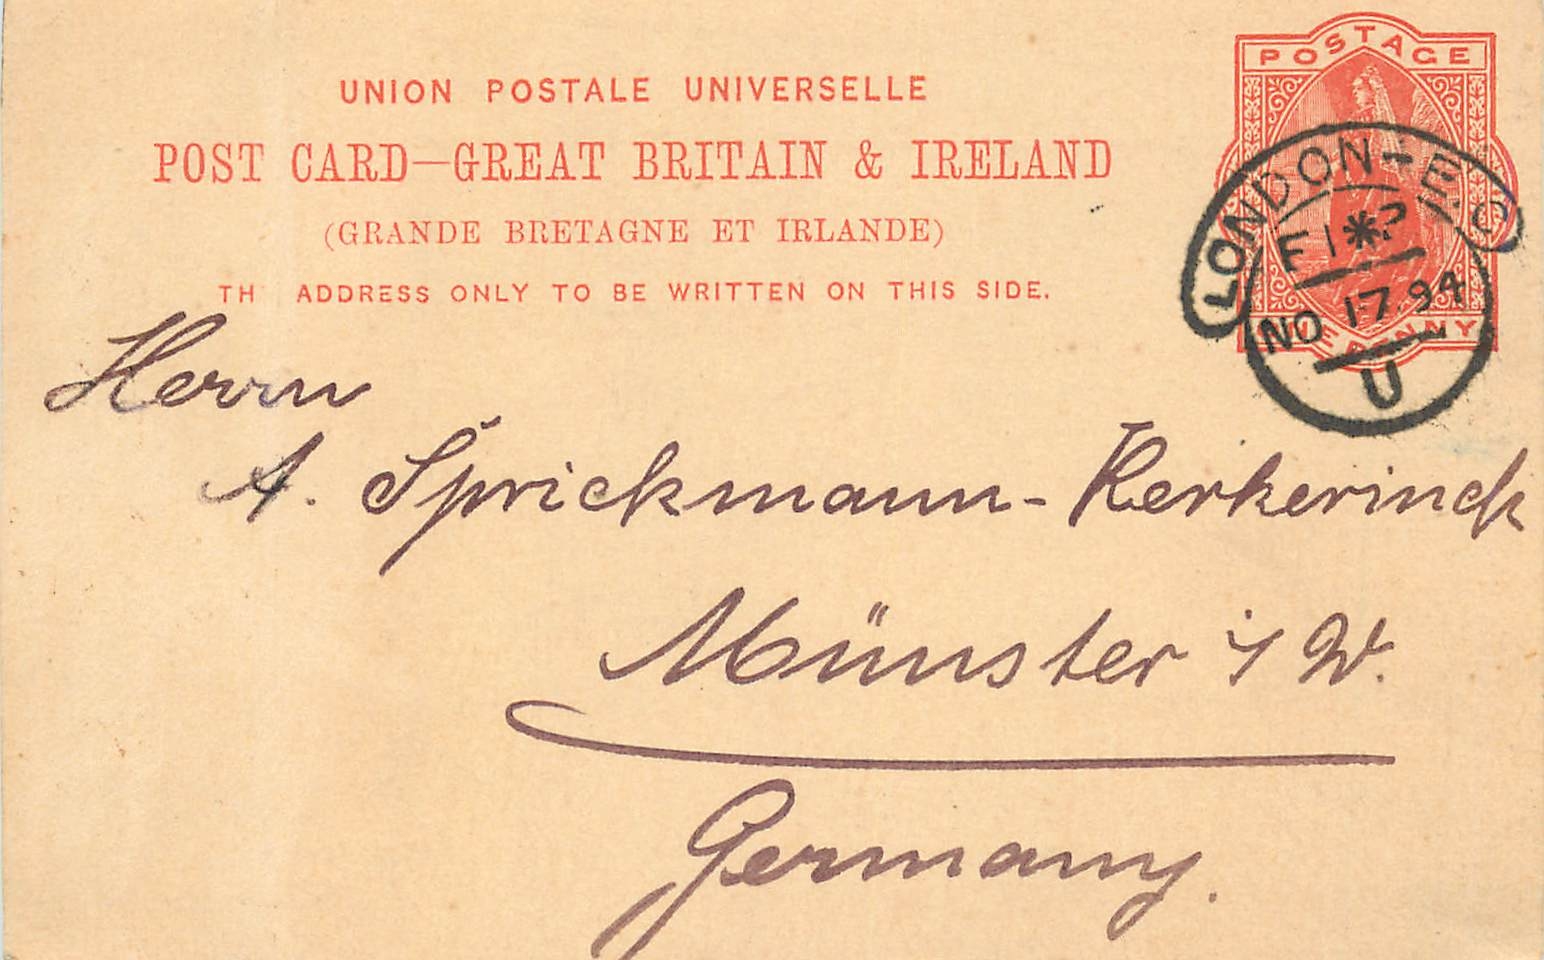 POSTAGE
UNION POSTALE UNIVERSELLE
POST CARD—GREAT BRITAIN & IRELAND
(GRANDE BRETAGNE ET IRLANDE)
TH ADDRESS ONLY TO BE WRITTEN ON THIS SIDE.
LONDON-E.C
NO 17.94
U
Herrn
A. Sprickmann-Kerkerinck
Münster i/W.
Germany.